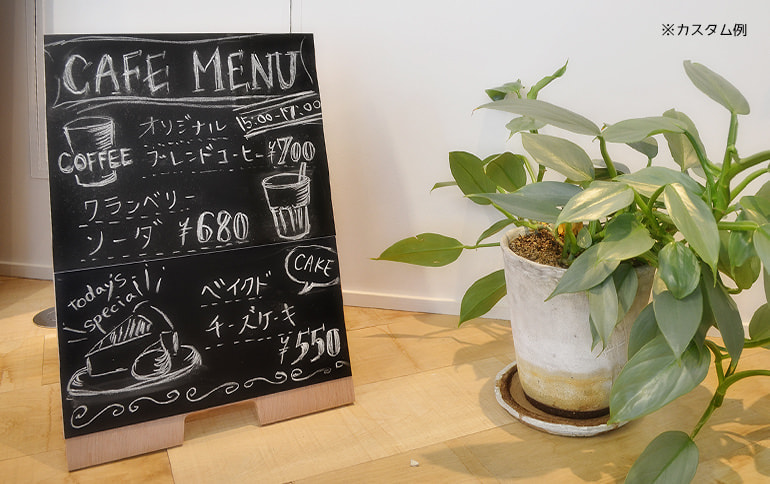 ※カスタム例
CAFE MENU
15:00-17:00
オリジナル
COFFEE
ブレンドコーヒー ¥700
クランベリー
ソーダ ¥680
CAKE
Today's
special
ベイクド
チーズケーキ
¥550